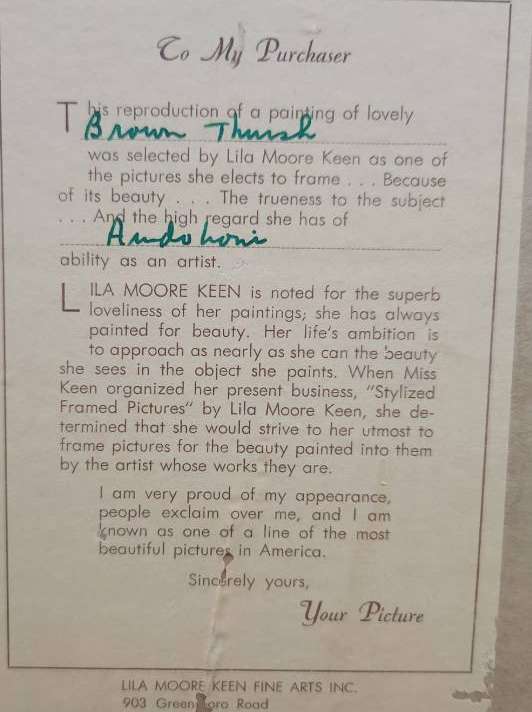 To My Purchaser
This reproduction of a painting of lovely
Brown Thrush
was selected by Lila Moore Keen as one of
the pictures she elects to frame . . . Because
of its beauty . . . The trueness to the subject
. . . And the high regard she has of
ability as an artist.
LILA MOORE KEEN is noted for the superb
loveliness of her paintings; she has always
painted for beauty. Her life's ambition is
to approach as nearly as she can the beauty
she sees in the object she paints. When Miss
Keen organized her present business, "Stylized
Framed Pictures" by Lila Moore Keen, she de-
termined that she would strive to her utmost to
frame pictures for the beauty painted into them
by the artist whose works they are.
I am very proud of my appearance,
people exclaim over me, and I am
known as one of a line of the most
beautiful pictures in America.
Sincerely yours,
Your Picture
LILA MOORE KEEN FINE ARTS INC.
903 Greensboro Road